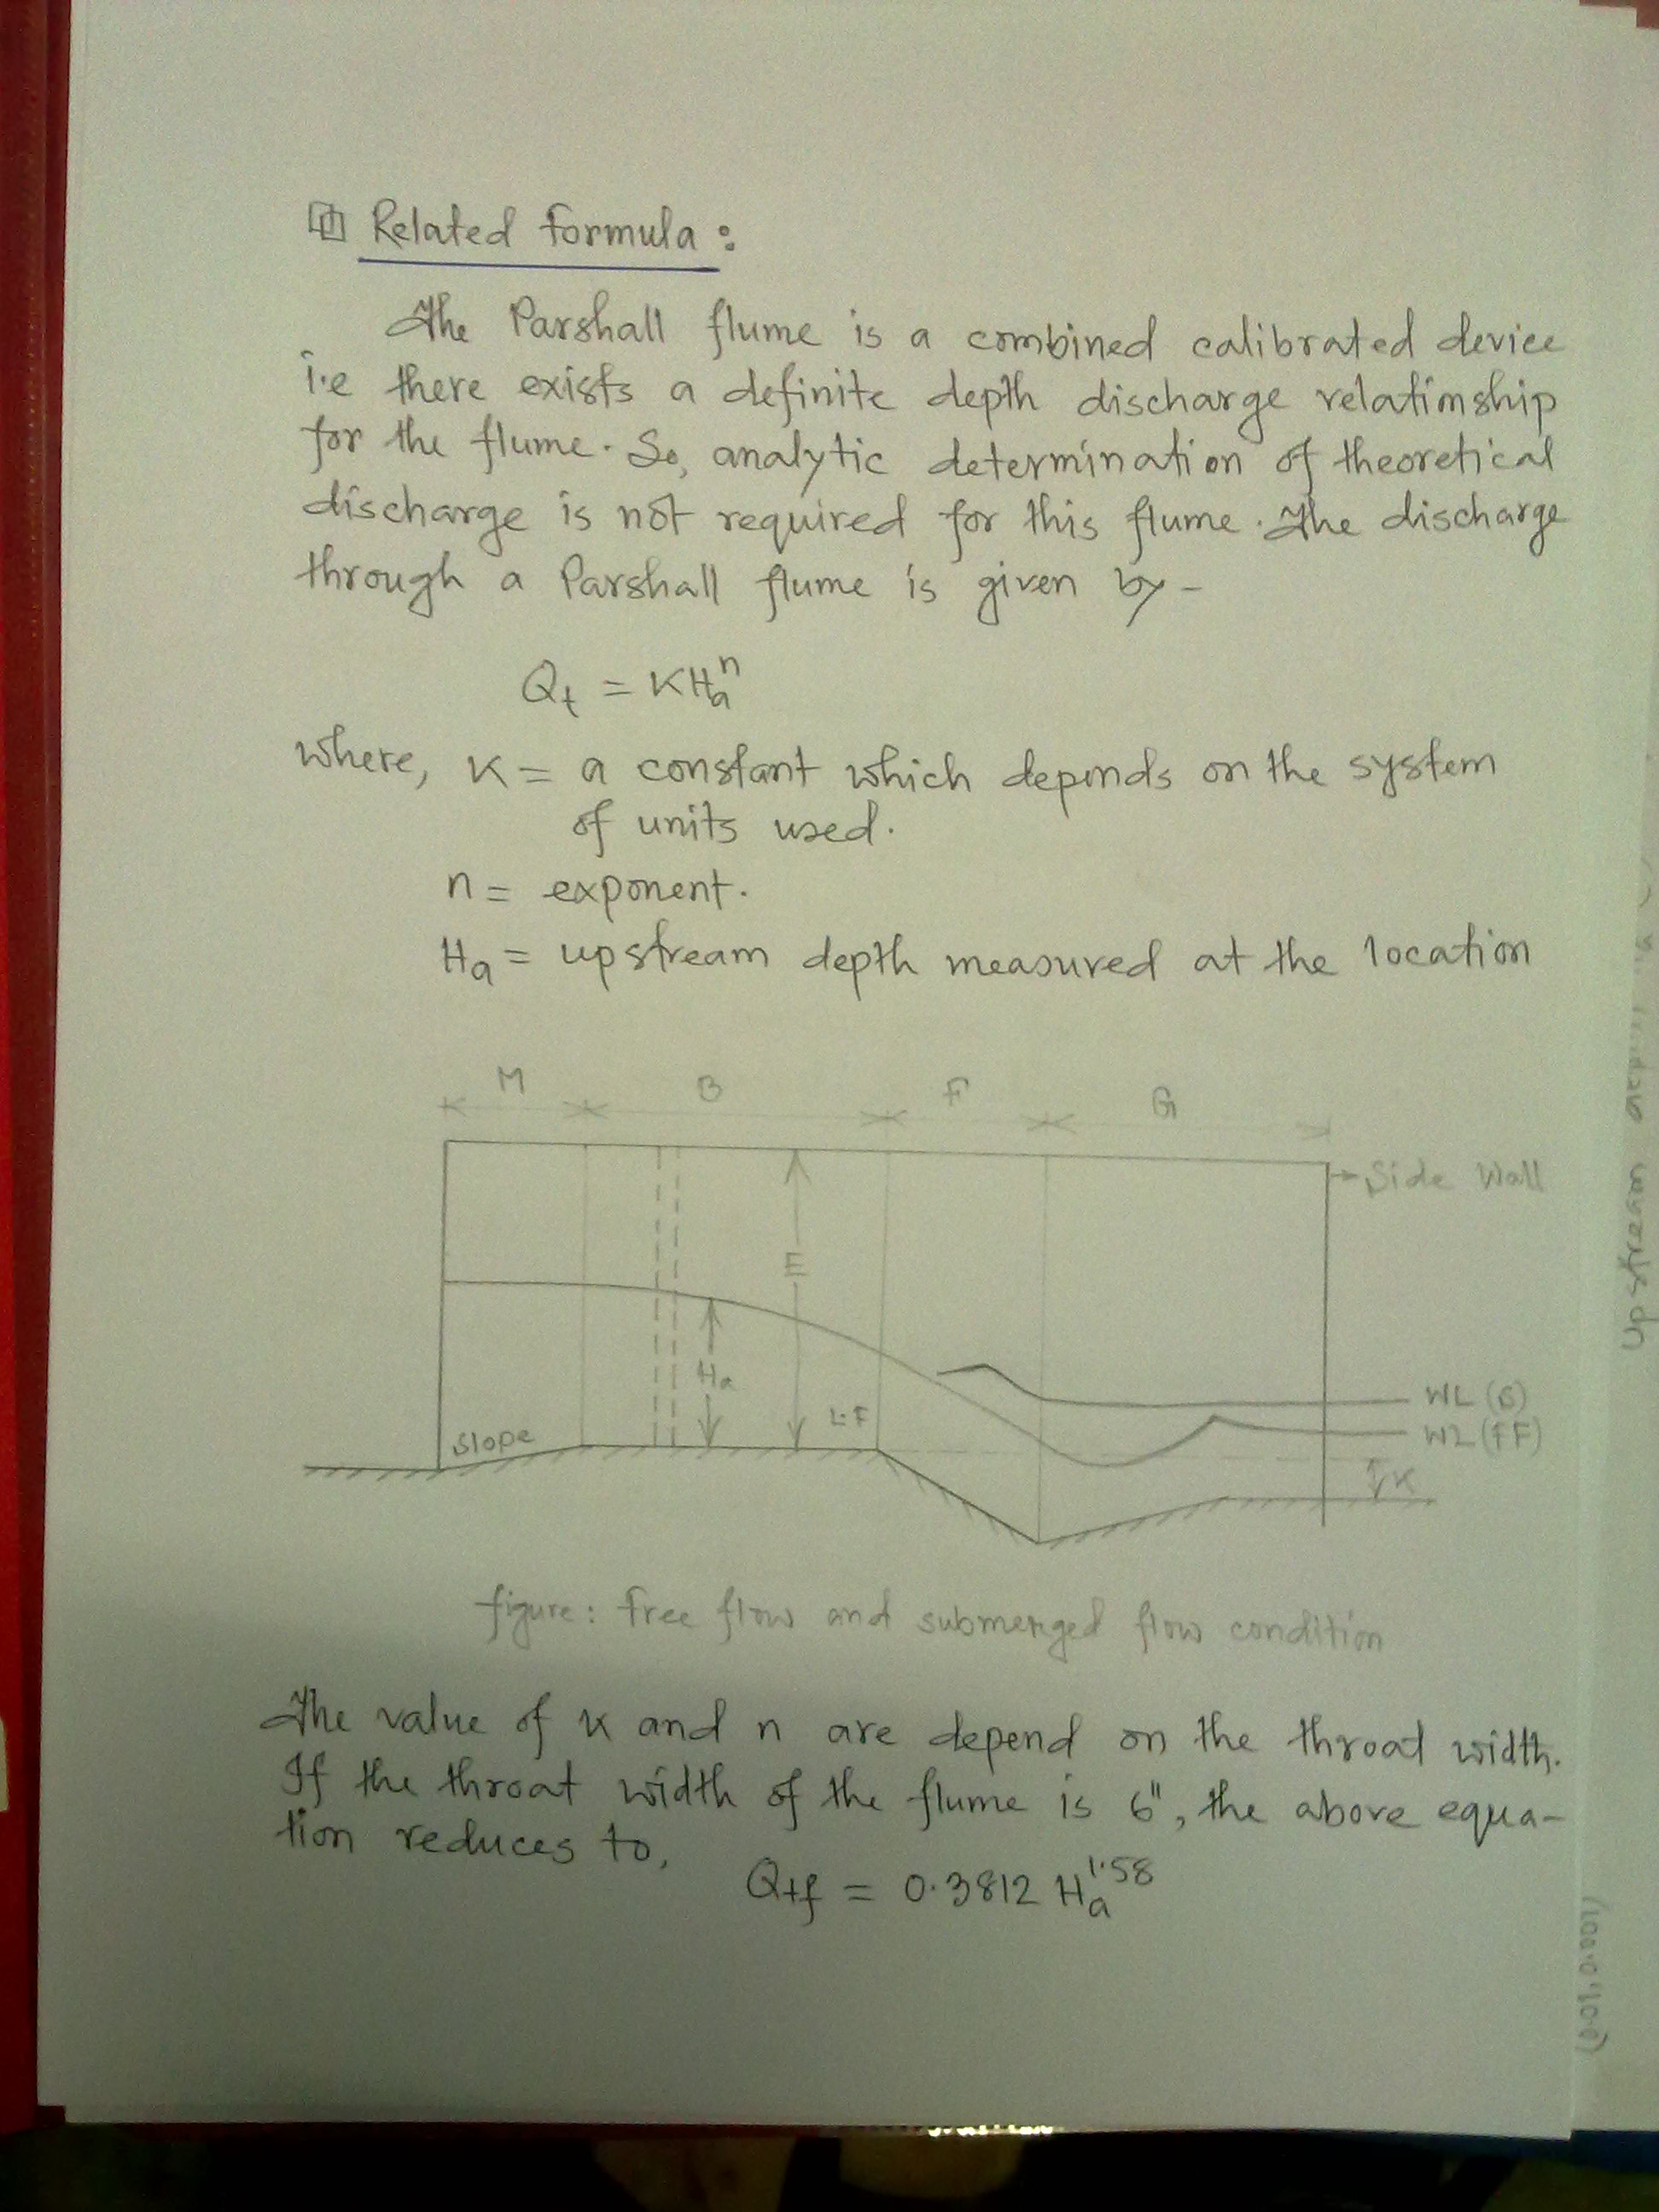 Related formula:
The Parshall flume is a combined calibrated device
i.e there exists a definite depth discharge relationship
for the flume. So, analytic determination of theoretical
discharge is not required for this flume. The discharge
through a Parshall flume is given by -
Qt = KHa^n
where, K = a constant which depends on the system
of units used.
n = exponent.
Ha = upstream depth measured at the location
M B F G
Side Wall
E
Ha
L.F
WL (S)
WL (FF)
slope
K
figure: free flow and submerged flow condition
The value of K and n are depend on the throat width.
If the throat width of the flume is 6", the above equa-
tion reduces to,
Qtf = 0.3812 Ha^1.58
upstream